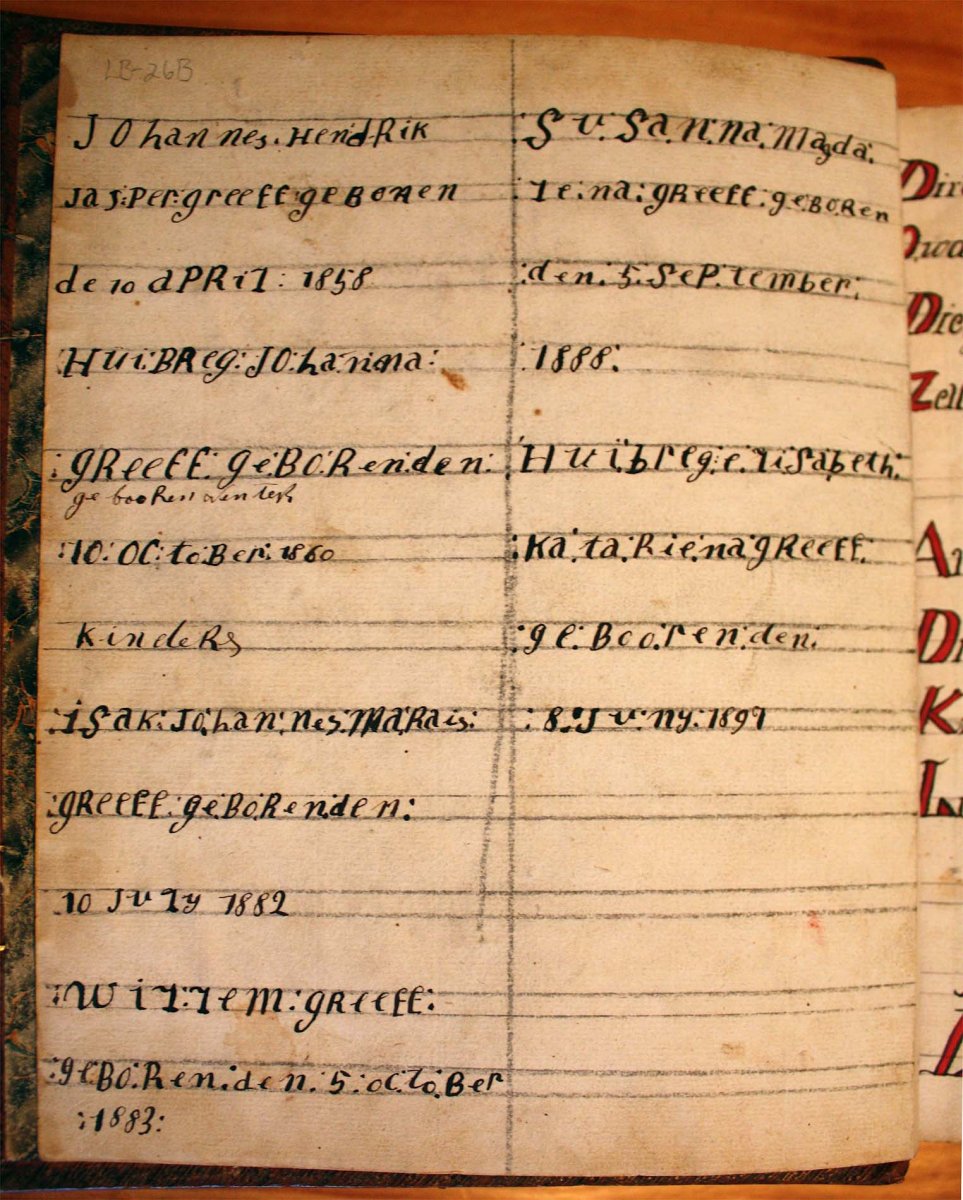 LB-26B
JOhannes. HendRik
Jasper: greeff geBoren
de 10 aPRil: 1858
HuiBReg: JOhanna:
:gReeff: geBORenden:
gebooren den
:10: OCtoBer: 1860
kindeRs
:isak: JOhannes: MaRais:
:gReeff: geBoRen:den:
10 July 1882
:Willem: gReeff:
:geBO:Ren:den: 5: octoBer
:1883:
:Susanna: Magda:
lena: gReeff: geBoRen
:den: 5: SePtember:
:1888:
:Huibreg: elisabeth:
:Katariena gReeff:
:geBoorenden:
:8: Juny: 1897
Dir
Die
Zell
A
D
K